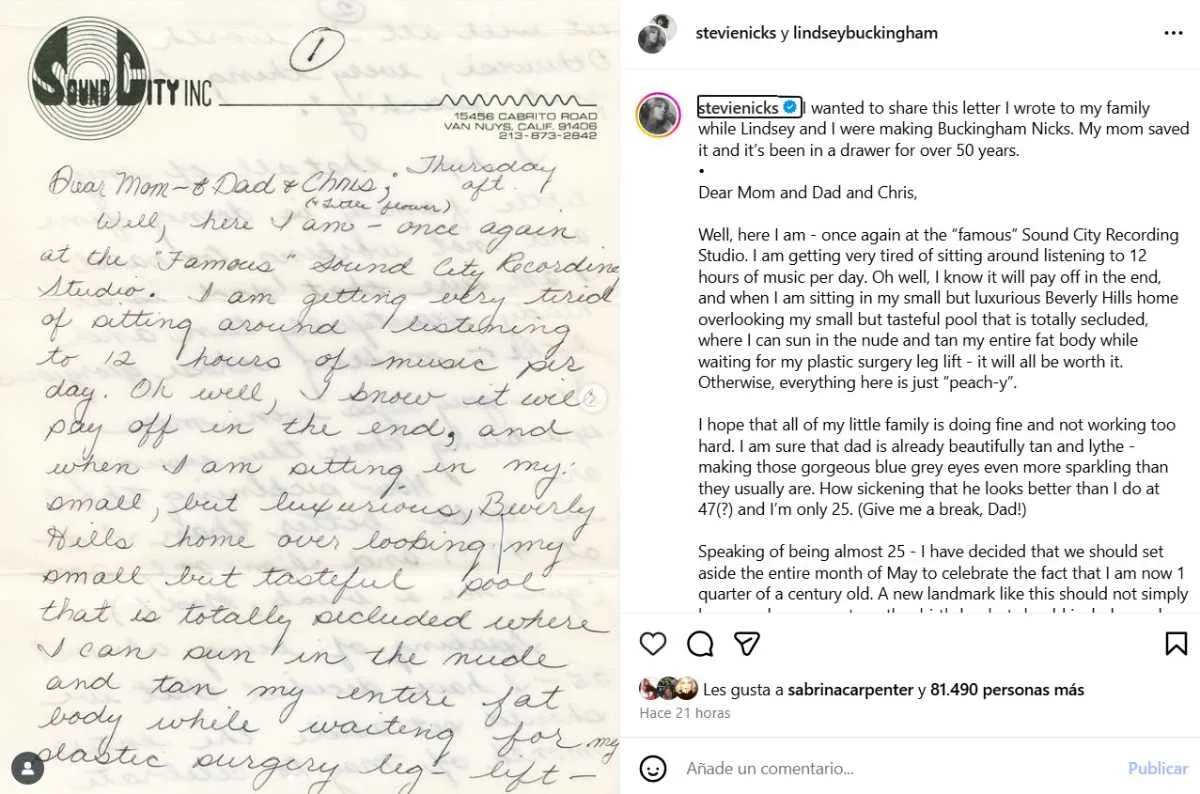 SOUND CITY INC
1
15456 CABRITO ROAD
VAN NUYS, CALIF. 91406
213-873-2842
Thursday
aft.
Dear Mom - & Dad & Chris,
(& Little flower)
Well, here I am - once again
at the "Famous" Sound City Recording
Studio. I am getting very tired
of sitting around listening
to 12 hours of music per
day. Oh well, I know it will
pay off in the end, and
when I am sitting in my
small, but luxurious, Beverly
Hills home over looking my
small but tasteful pool
that is totally secluded where
I can sun in the nude
and tan my entire fat
body while waiting for my
plastic surgery leg-lift -
stevienicks y lindseybuckingham
stevienicks I wanted to share this letter I wrote to my family
while Lindsey and I were making Buckingham Nicks. My mom saved
it and it's been in a drawer for over 50 years.
•
Dear Mom and Dad and Chris,
Well, here I am - once again at the “famous” Sound City Recording
Studio. I am getting very tired of sitting around listening to 12
hours of music per day. Oh well, I know it will pay off in the end,
and when I am sitting in my small but luxurious Beverly Hills home
overlooking my small but tasteful pool that is totally secluded,
where I can sun in the nude and tan my entire fat body while
waiting for my plastic surgery leg lift - it will all be worth it.
Otherwise, everything here is just “peach-y”.
I hope that all of my little family is doing fine and not working too
hard. I am sure that dad is already beautifully tan and lythe -
making those gorgeous blue grey eyes even more sparkling than
they usually are. How sickening that he looks better than I do at
47(?) and I'm only 25. (Give me a break, Dad!)
Speaking of being almost 25 - I have decided that we should set
aside the entire month of May to celebrate the fact that I am now 1
quarter of a century old. A new landmark like this should not simply
Les gusta a sabrinacarpenter y 81.490 personas más
Hace 21 horas
Añade un comentario...
Publicar